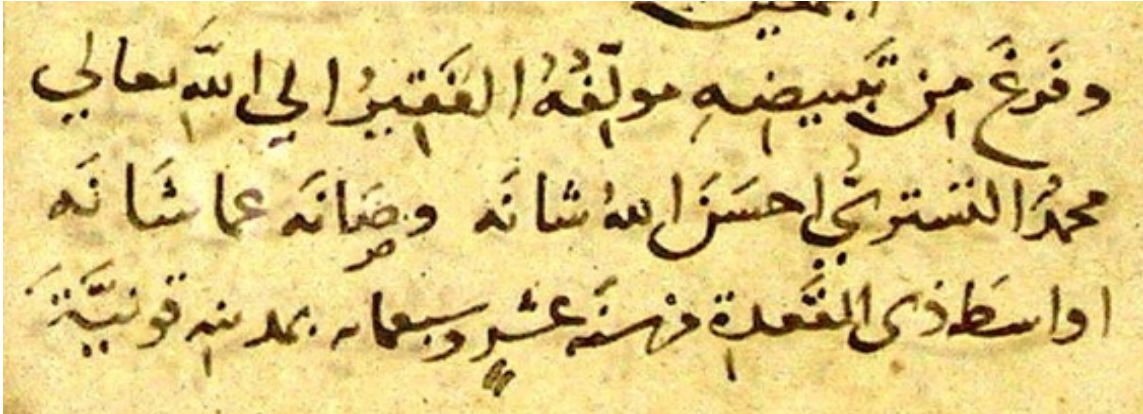 وفَرَغَ مِن تَبييضِهِ مولّفُهُ الفَقيرُ الي اللهِ تعالي
محمدُ التستريُّ احسَنَ اللهُ شانَه وصَانَه عما شَانَه
اواسطَ ذي القَعدة من سنه عشرٍ وسبعمايه بمدينه قونيَّة